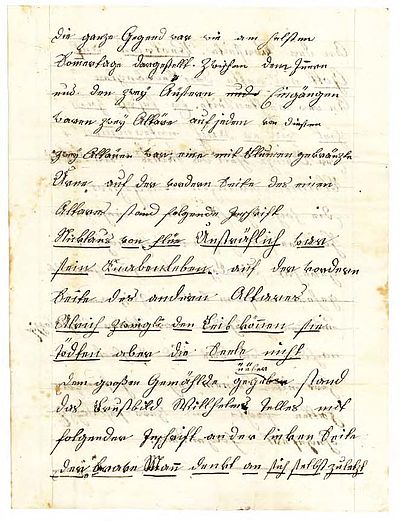 die ganze Gegend war wie am hellsten
Sommertage dargestellt. Zwischen dem Innern
und den zwey Eingängen
waren zwey Altäre auf jedem von diesen
zwey Altären war eine mit Blumen gekränzte
Urne auf der vordern Seite des einen
Altares stand folgende Inschrift
Niklaus von Flüe Unsträflich war
sein Knabenleben auf der vordern
Seite des andern Altares
Ulrich Zwingli den Leib können sie
tödten aber die Seele nicht
Dem großen Gemählde gegenüber stand
das Brustbild Wilhelm Telles mit
folgender Inschrift an der linken Seite
der brave Man̄ denkt an sich selbst zuletzt